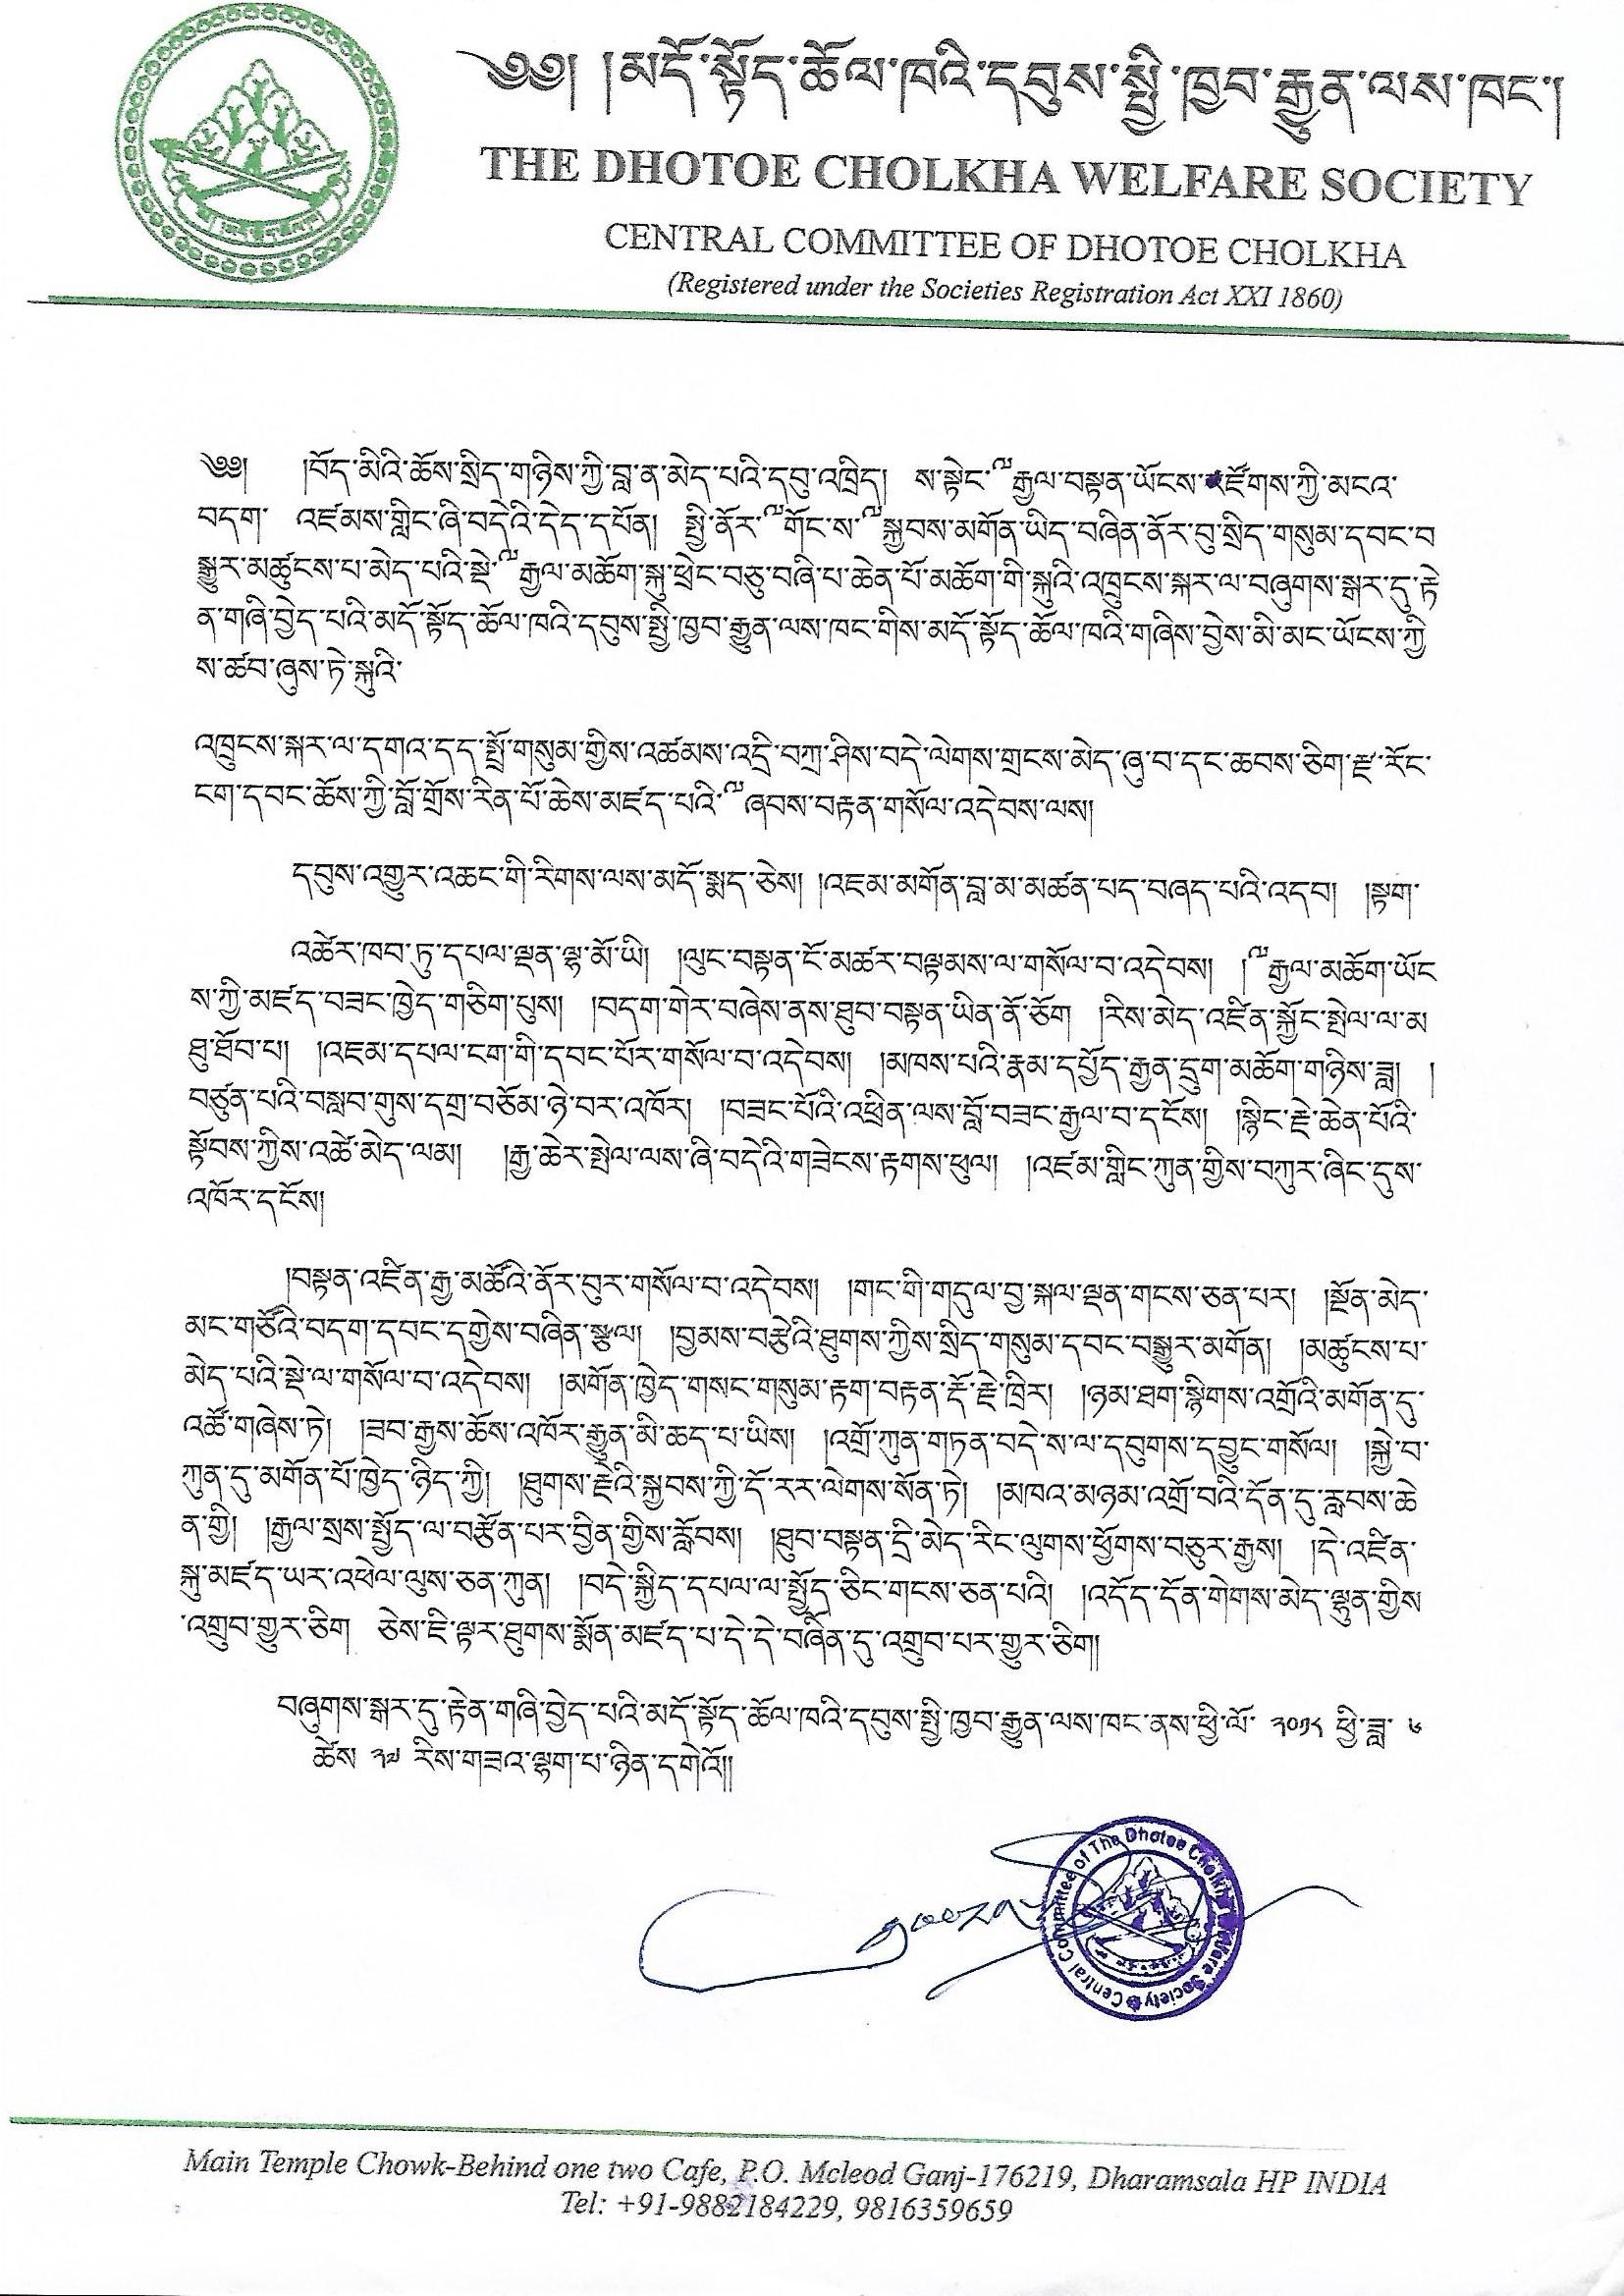 ༄༅། །མདོ་སྟོད་ཆོལ་ཁའི་དབུས་སྤྱི་ཁྱབ་རྒྱུན་ལས་ཁང་།
THE DHOTOE CHOLKHA WELFARE SOCIETY
CENTRAL COMMITTEE OF DHOTOE CHOLKHA
(Registered under the Societies Registration Act XXI 1860)
༄༅། །བོད་མིའི་ཆོས་སྲིད་གཉིས་ཀྱི་བླ་ན་མེད་པའི་དབུ་འཁྲིད། ས་སྟེང་༸རྒྱལ་བསྟན་ཡོངས་རྫོགས་ཀྱི་མངའ་
བདག་ འཛམས་གླིང་ཞི་བདེའི་དེད་དཔོན། སྤྱི་ནོར་༸གོང་ས་༸སྐྱབས་མགོན་ཡིད་བཞིན་ནོར་བུ་སྲིད་གསུམ་དབང་བ
སྒྱུར་མཚུངས་པ་མེད་པའི་སྡེ་༸རྒྱལ་མཆོག་སྐུ་ཕྲེང་བཅུ་བཞི་པ་ཆེན་པོ་མཆོག་གི་སྐུའི་འཁྲུངས་སྐར་ལ་བཞུགས་སྒར་དུ་རྟེ
ན་གཞི་བྱེད་པའི་མདོ་སྟོད་ཆོལ་ཁའི་དབུས་སྤྱི་ཁྱབ་རྒྱུན་ལས་ཁང་གིས་མདོ་སྟོད་ཆོལ་ཁའི་གཞིས་བྱེས་མི་མང་ཡོངས་ཀྱི
ས་ཚབ་ཞུས་ཏེ་སྐུའི་
འཁྲུངས་སྐར་ལ་དགའ་དད་སྤྲོ་གསུམ་གྱིས་འཚམས་འདྲི་བཀྲ་ཤིས་བདེ་ལེགས་གྲངས་མེད་ཞུ་བ་དང་ཆབས་ཅིག་རྫ་རོང་
ངག་དབང་ཆོས་ཀྱི་བློ་གྲོས་རིན་པོ་ཆེས་མཛད་པའི་༸ཞབས་བརྟན་གསོལ་འདེབས་ལས།
དབུས་འགྱུར་འཆང་གི་རིགས་ལས་མདོ་སྨད་ཅེས། །འཇམ་མགོན་བླ་མ་མཚན་པད་བཞད་པའི་འདབ། །སྟག་
འཚེར་ཁབ་ཏུ་དཔལ་ལྡན་ལྷ་མོ་ཡི། །ལུང་བསྟན་ངོ་མཚར་བལྟམས་ལ་གསོལ་བ་འདེབས། །༸རྒྱལ་མཆོག་ཡོང
ས་ཀྱི་མཛད་བཟང་ཁྱེད་གཅིག་པུས། །བདག་གེར་བཞེས་ནས་ཐུབ་བསྟན་ཡིན་ནོ་ཅོག །རིས་མེད་འཛིན་སྐྱོང་སྤེལ་ལ་མ
ཐུ་ཐོབ་པ། །འཇམ་དཔལ་ངག་གི་དབང་པོར་གསོལ་བ་འདེབས། །མཁས་པའི་རྣམ་དཔྱོད་རྒྱན་དྲུག་མཆོག་གཉིས་ཟླ། །
བཙུན་པའི་བསླབ་གུས་དགྲ་བཅོམ་ཉེ་བར་འཁོར། །བཟང་པོའི་འཕྲིན་ལས་བློ་བཟང་རྒྱལ་བ་དངོས། །སྙིང་རྗེ་ཆེན་པོའི་
སྟོབས་ཀྱིས་འཚེ་མེད་ལམ། །རྒྱ་ཆེར་སྤེལ་ལས་ཞི་བདེའི་གཟེངས་རྟགས་ཕུལ། །འཛམ་གླིང་ཀུན་གྱིས་བཀུར་ཞིང་དུས་
འཁོར་དངོས།
།བསྟན་འཛིན་རྒྱ་མཚོའི་ནོར་བུར་གསོལ་བ་འདེབས། །གང་གི་གདུལ་བྱ་སྐལ་ལྡན་གངས་ཅན་པར། །སྔོན་མེད་
མང་གཙོའི་བདག་དབང་དགྱེས་བཞིན་སྩལ། །བྱམས་བརྩེའི་ཐུགས་ཀྱིས་སྲིད་གསུམ་དབང་བསྒྱུར་མགོན། །མཚུངས་པ་
མེད་པའི་སྡེ་ལ་གསོལ་བ་འདེབས། །མགོན་ཁྱེད་གསང་གསུམ་རྟག་བརྟན་རྡོ་རྗེ་ཁྲིར། །ཉམ་ཐག་སྙིགས་འགྲོའི་མགོན་དུ་
འཚོ་གཞེས་ཏེ། །ཟབ་རྒྱས་ཆོས་འཁོར་རྒྱུན་མི་ཆད་པ་ཡིས། །འགྲོ་ཀུན་གཏན་བདེ་ས་ལ་དབུགས་དབྱུང་གསོལ། །སྐྱེ་བ་
ཀུན་དུ་མགོན་པོ་ཁྱེད་ཉིད་ཀྱི། །ཐུགས་རྗེའི་སྐྱབས་ཀྱི་དོ་རར་ལེགས་སོན་ཏེ། །མཁའ་མཉམ་འགྲོ་བའི་དོན་དུ་རླབས་ཆེ
ན་གྱི། །རྒྱལ་སྲས་སྤྱོད་ལ་བརྩོན་པར་བྱིན་གྱིས་རློབས། །ཐུབ་བསྟན་དྲི་མེད་རིང་ལུགས་ཕྱོགས་བཅུར་རྒྱས། །དེ་འཛིན་
སྐུ་མཛད་ཡར་འཕེལ་ལུས་ཅན་ཀུན། །བདེ་སྐྱིད་དཔལ་ལ་སྤྱོད་ཅིང་གངས་ཅན་པའི། །འདོད་དོན་གེགས་མེད་ལྷུན་གྱིས
་འགྲུབ་གྱུར་ཅིག ཅེས་ཇི་ལྟར་ཐུགས་སྨོན་མཛད་པ་དེ་དེ་བཞིན་དུ་འགྲུབ་པར་གྱུར་ཅིག།
བཞུགས་སྒར་དུ་རྟེན་གཞི་བྱེད་པའི་མདོ་སྟོད་ཆོལ་ཁའི་དབུས་སྤྱི་ཁྱབ་རྒྱུན་ལས་ཁང་ནས་ཕྱི་ལོ་ ༢༠༡༨ ཕྱི་ཟླ་ ༦
ཚེས ༢༧ རིས་གཟའ་ལྷག་པ་ཉིན་དགེའོ།།
Central Committee of The Dhotoe Cholkha Welfare Society
Main Temple Chowk-Behind one two Cafe, P.O. Mcleod Ganj-176219, Dharamsala HP INDIA
Tel: +91-9882184229, 9816359659